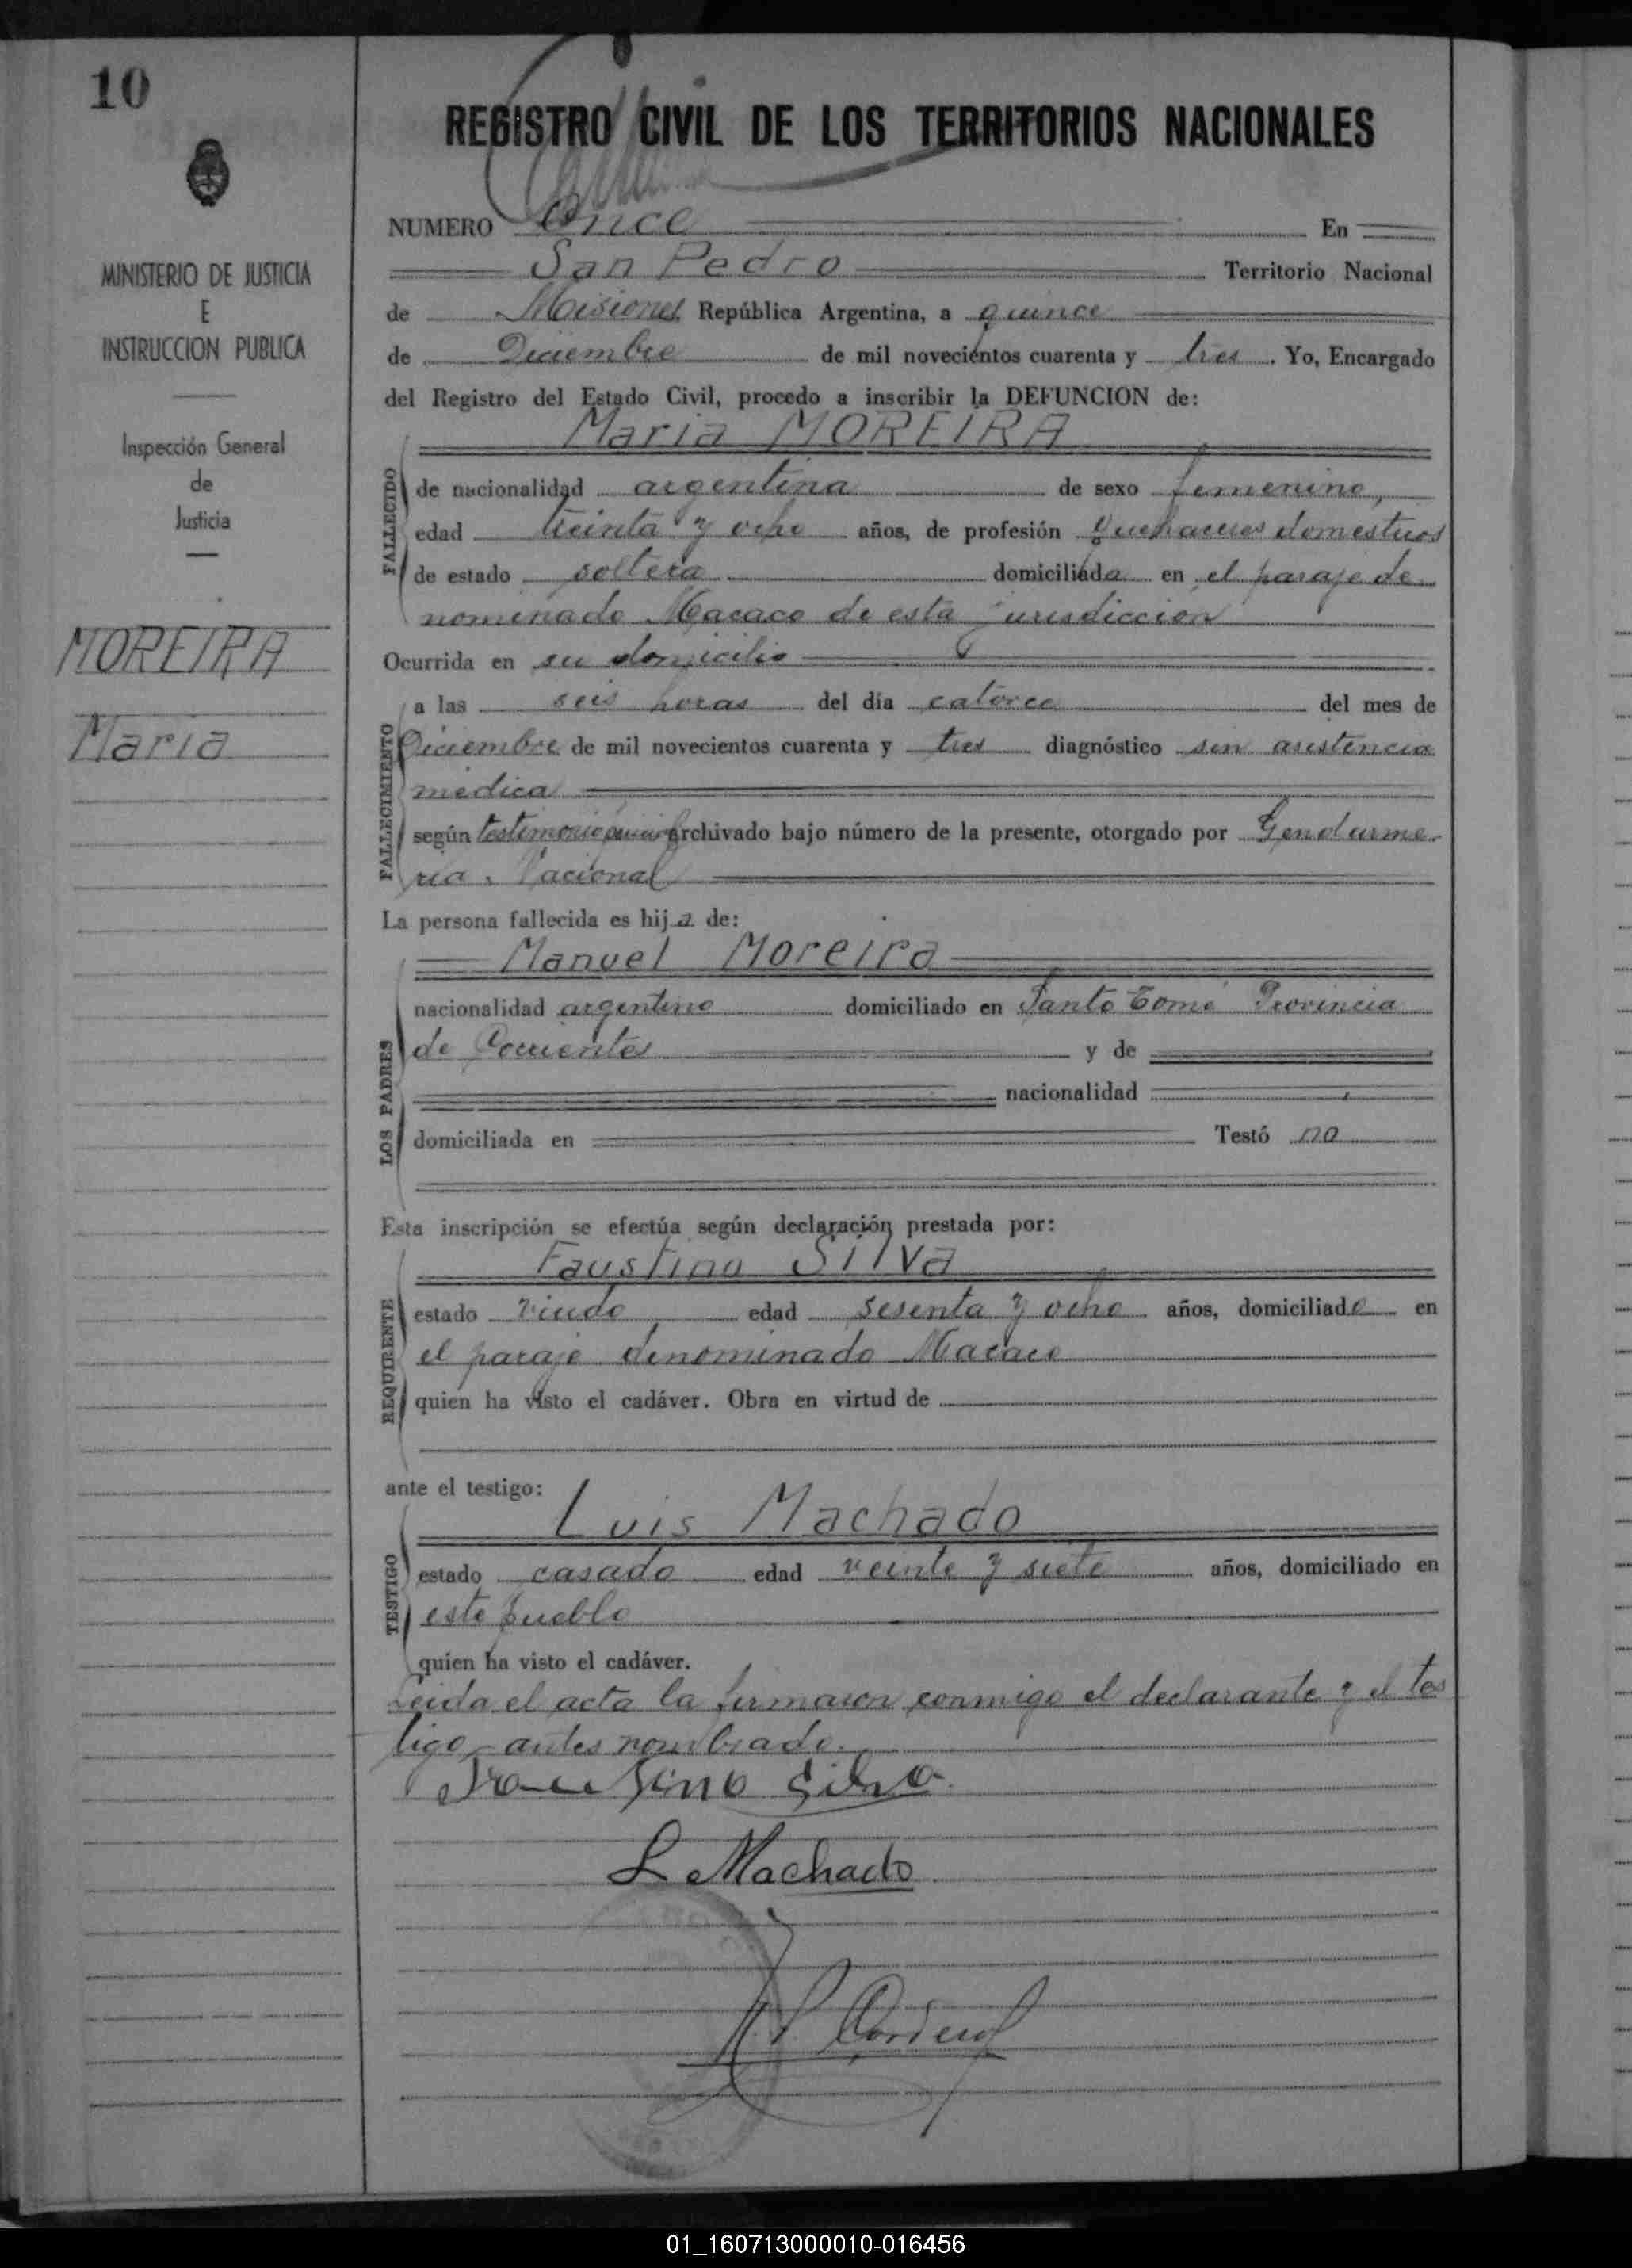 10
MINISTERIO DE JUSTICIA
E
INSTRUCCION PUBLICA
Inspección General
de
Justicia
MOREIRA
Maria
REGISTRO CIVIL DE LOS TERRITORIOS NACIONALES
NUMERO Once En
San Pedro Territorio Nacional
de Misiones, República Argentina, a quince
de Diciembre de mil novecientos cuarenta y tres. Yo, Encargado
del Registro del Estado Civil, procedo a inscribir la DEFUNCION de:
Maria MOREIRA
FALLECIDO
de nacionalidad argentina de sexo femenino,
edad treinta y ocho años, de profesión quehaceres domesticos
de estado soltera domiciliada en el paraje de
nominado Macaco de esta jurisdiccion
Ocurrida en su domicilio
FALLECIMIENTO
a las seis horas del día catorce del mes de
Diciembre de mil novecientos cuarenta y tres diagnóstico sin asistencia
medica
según testimonio archivado bajo número de la presente, otorgado por Gendarme
ria Nacional
La persona fallecida es hija de:
LOS PADRES
Manuel Moreira
nacionalidad argentino domiciliado en Santo Tomé Provincia
de Corrientes y de
nacionalidad
domiciliada en Testó no
Esta inscripción se efectúa según declaración prestada por:
REQUIRENTE
Faustino Silva
estado viudo edad sesenta y ocho años, domiciliado en
el paraje denominado Macaco
quien ha visto el cadáver. Obra en virtud de
ante el testigo:
TESTIGO
Luis Machado
estado casado edad veinte y siete años, domiciliado en
este pueblo
quien ha visto el cadáver.
Leida el acta la firmaron conmigo el declarante y el tes
tigo antes nombrado.
Faustino Silva
L Machado
01_160713000010-016456